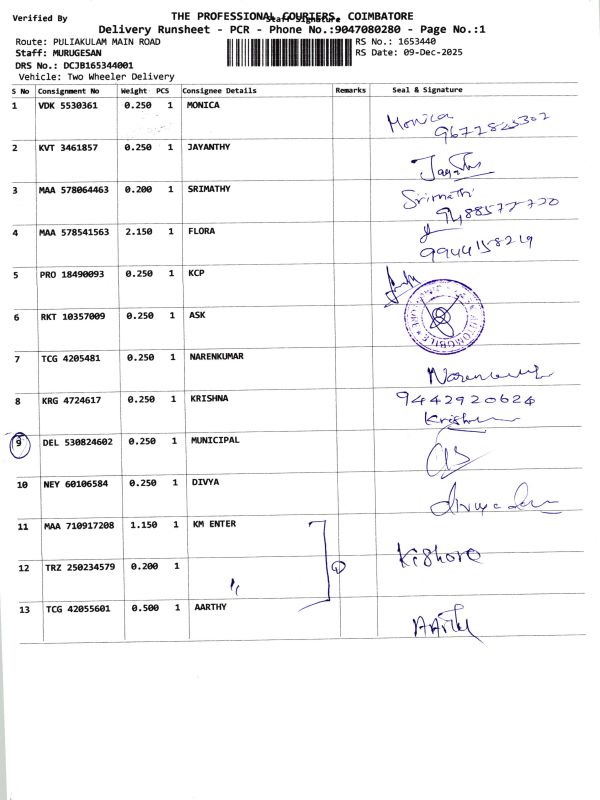 Verified By
THE PROFESSIONAL COURIERS, COIMBATORE
Staff Signature
Delivery Runsheet - PCR - Phone No.:9047080280 - Page No.:1
Route: PULIAKULAM MAIN ROAD
RS No.: 1653440
Staff: MURUGESAN
RS Date: 09-Dec-2025
DRS No.: DCJB165344001
Vehicle: Two Wheeler Delivery
S No Consignment No Weight PCS Consignee Details Remarks Seal & Signature
1 VDK 5530361 0.250 1 MONICA Monica
2 KVT 3461857 0.250 1 JAYANTHY
3 MAA 578064463 0.200 1 SRIMATHY Srimathi
9488577720
4 MAA 578541563 2.150 1 FLORA
9944158219
5 PRO 18490093 0.250 1 KCP
6 RKT 10357009 0.250 1 ASK AUTOMOBILE
7 TCG 4205481 0.250 1 NARENKUMAR
8 KRG 4724617 0.250 1 KRISHNA 9442920624
9 DEL 530824602 0.250 1 MUNICIPAL
10 NEY 60106584 0.250 1 DIVYA
11 MAA 710917208 1.150 1 KM ENTER Kishore
12 TRZ 250234579 0.200 1 "
13 TCG 42055601 0.500 1 AARTHY